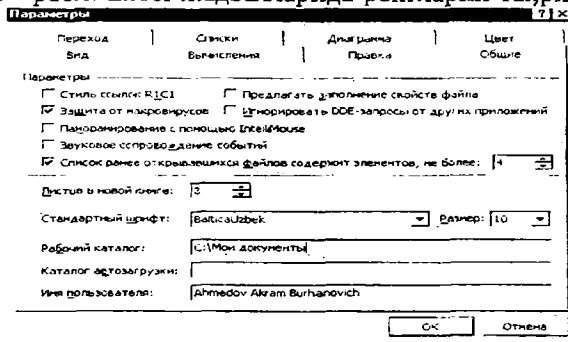 Параметры ? ×
Переход Списки Диаграмма Цвет
Вид Вычисления Правка Общие
Параметры
Стиль ссылок R1C1 Предлагать заполнение свойств файла
Защита от макровирусов Игнорировать DDE-запросы от других приложений
Панорамирование с помощью IntelliMouse
Звуковое сопровождение событий
Список ранее открывавшихся файлов содержит элементов, не более: 4
Листов в новой книге: 3
Стандартный шрифт: BalticaUzbek Размер: 10
Рабочий каталог: C:\Мои документы
Каталог автозагрузки:
Имя пользователя: Ahmedov Akram Burhanovich
OK Отмена